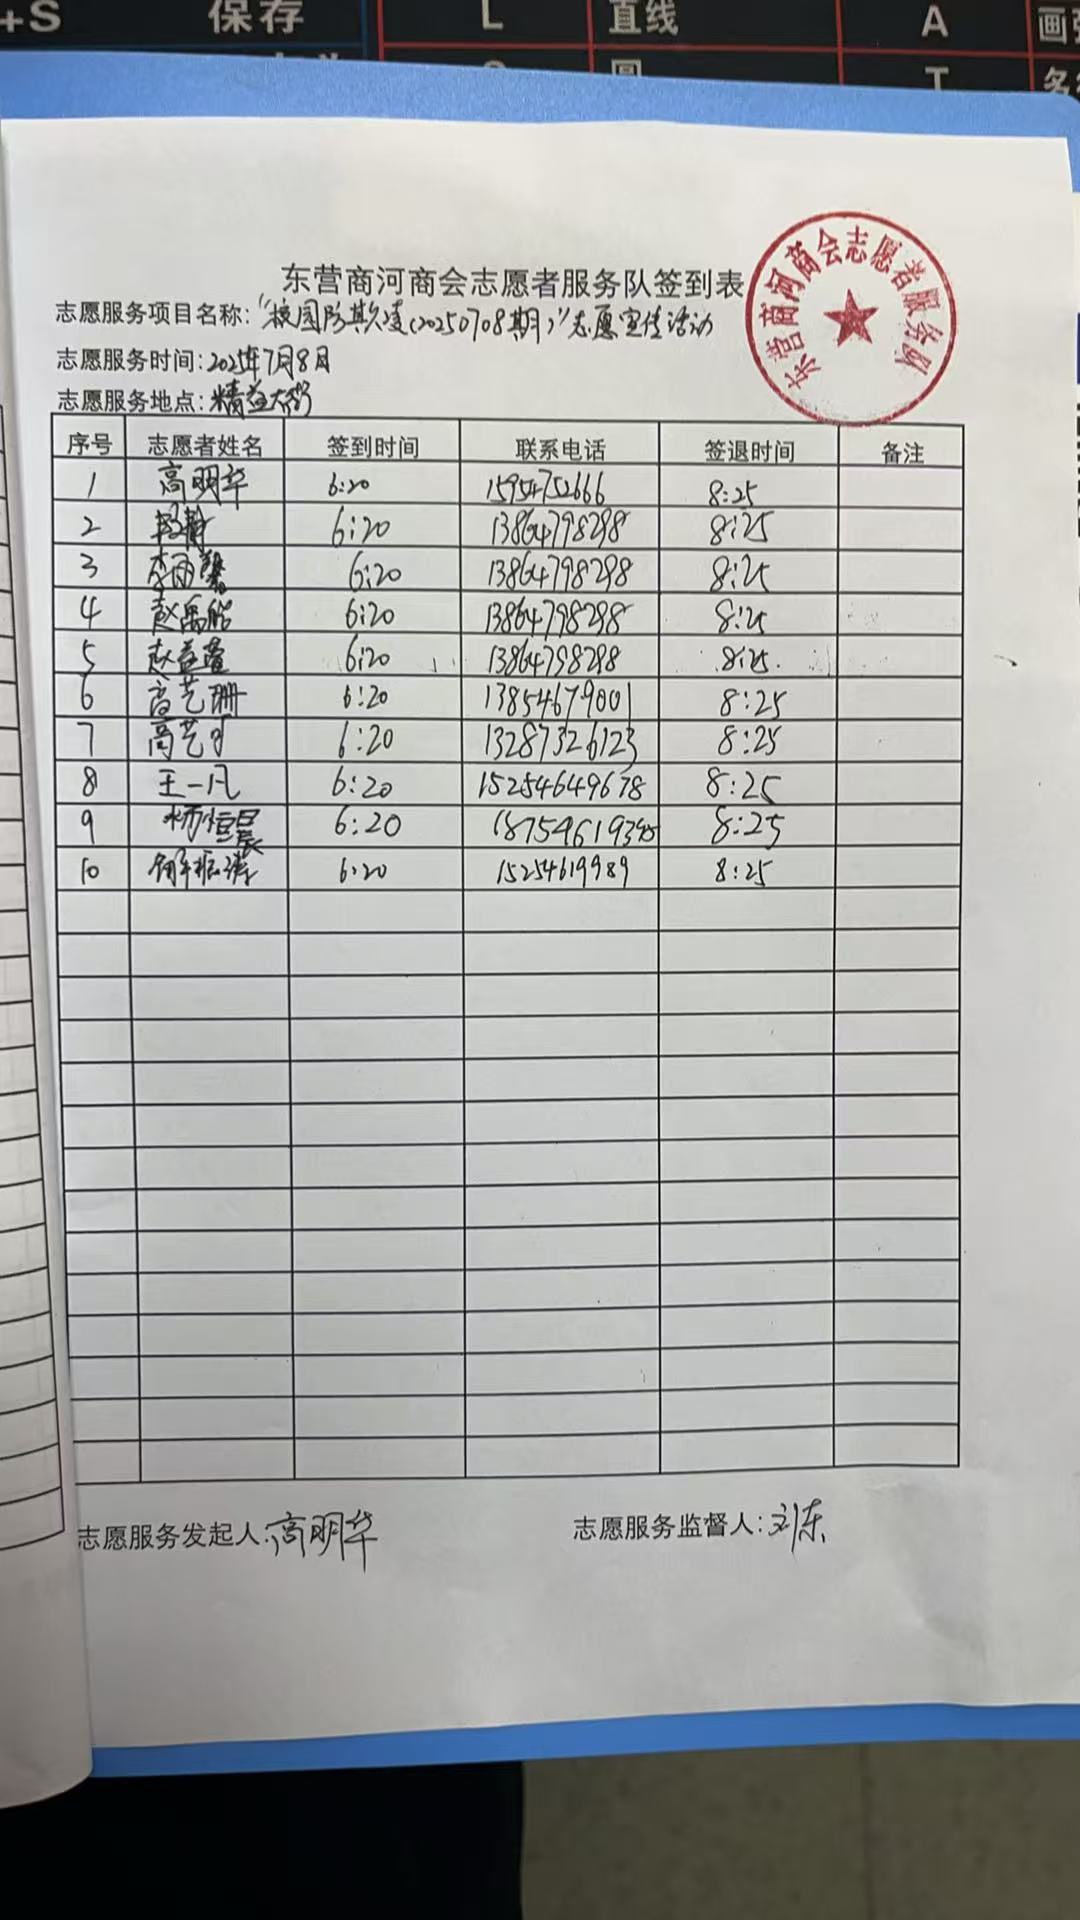 +S 保存 L 直线 A
圆 T
东营商河商会志愿者服务队签到表
东营商河商会志愿者服务队
志愿服务项目名称："校园防欺凌(20250708期)"志愿宣传活动
志愿服务时间：2025年7月8日
志愿服务地点：精益大街
序号 志愿者姓名 签到时间 联系电话 签退时间 备注
1 高明华 6:20 15954752666 8:25
2 6:20 13864798298 8:25
3 李雨馨 6:20 13864798298 8:25
4 赵禹皓 6:20 13864798298 8:25
5 赵益萱 6:20 13864798298 8:25
6 高艺珊 6:20 13854679001 8:25
7 高艺 6:20 13287326123 8:25
8 王一凡 6:20 15254649678 8:25
9 杨恒晨 6:20 8:25
10 6:20 15254619989 8:25
志愿服务发起人：高明华 志愿服务监督人：刘东